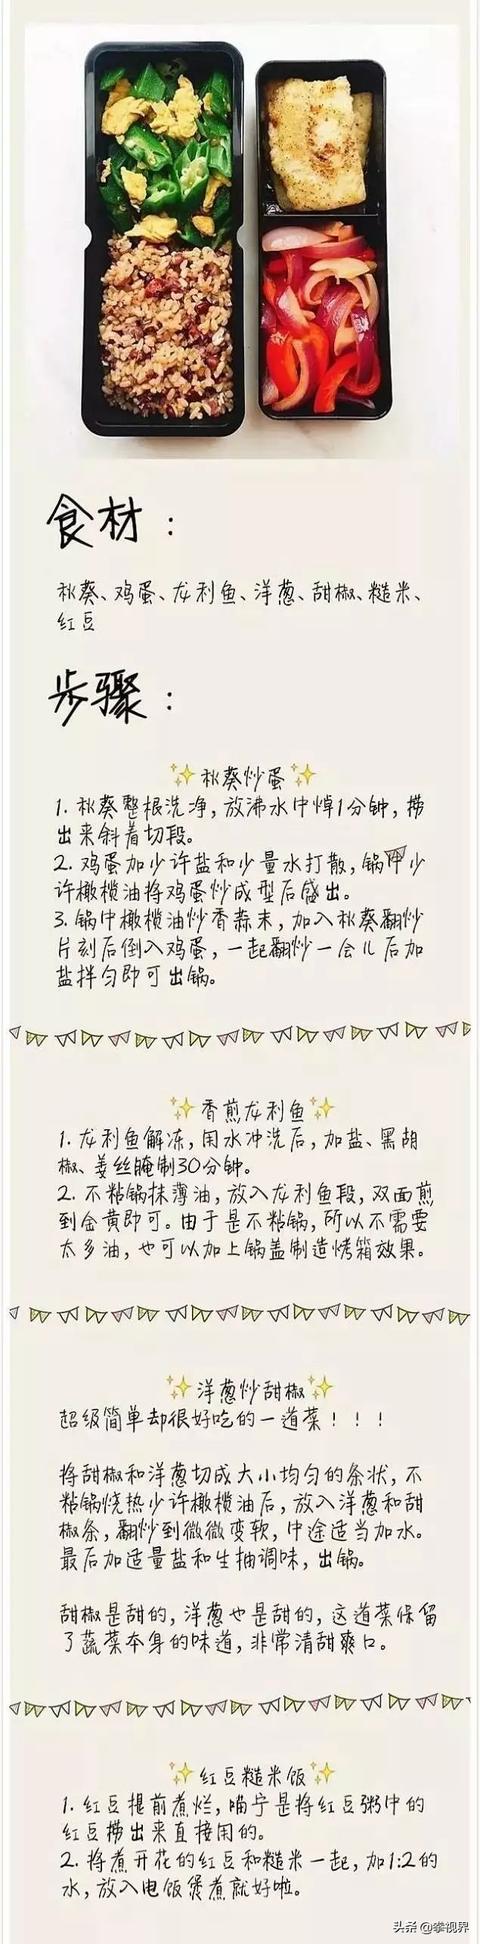 食材：
秋葵、鸡蛋、龙利鱼、洋葱、甜椒、糙米、
红豆
步骤：
✨秋葵炒蛋✨
1. 秋葵整根洗净，放沸水中焯1分钟，捞
出来斜着切段。
2. 鸡蛋加少许盐和少量水打散，锅中少
许橄榄油将鸡蛋炒成型后盛出。
3. 锅中橄榄油炒香蒜末，加入秋葵翻炒
片刻后倒入鸡蛋，一起翻炒一会儿后加
盐拌匀即可出锅。
✨香煎龙利鱼✨
1. 龙利鱼解冻，用水冲洗后，加盐、黑胡
椒、姜丝腌制30分钟。
2. 不粘锅抹薄油，放入龙利鱼段，双面煎
到金黄即可。由于是不粘锅，所以不需要
太多油，也可以加上锅盖制造烤箱效果。
✨洋葱炒甜椒✨
超级简单却很好吃的一道菜！！！
将甜椒和洋葱切成大小均匀的条状，不
粘锅烧热少许橄榄油后，放入洋葱和甜
椒条，翻炒到微微变软，中途适当加水。
最后加适量盐和生抽调味，出锅。
甜椒是甜的，洋葱也是甜的，这道菜保留
了蔬菜本身的味道，非常清甜爽口。
✨红豆糙米饭✨
1. 红豆提前煮烂，喵宁是将红豆粥中的
红豆捞出来直接用的。
2. 将煮开花的红豆和糙米一起，加1:2的
水，放入电饭煲煮就好啦。
头条@拳视界